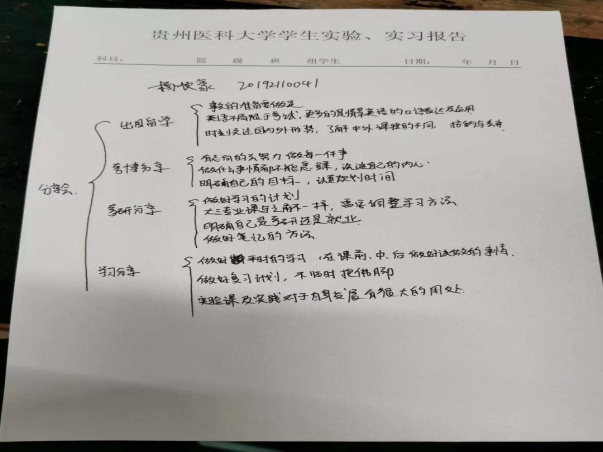 贵州医科大学学生实验、实习报告
科目： 院 级 班 组学生 日期： 年 月 日
20192110041
分享会
出国留学
事先的准备要做足
英语不局限于考试，更多的是情景英语的口语表达及应用
时刻关注国内外形势，了解中外课程的不同
考博分享
有方向的去努力做每一件事
做什么事情都不能急躁，沉淀自己的内心
明确自己的目标，认真规划时间
考研分享
做好学习的计划
大三专业课与之前不一样，需要调整学习方法
明确自己是考研还是就业
做好笔记的方法
学习分享
做好平时的学习，在课前、中、后做好该做的事情
做好复习计划，不临时抱佛脚
实验课及实践对于自身发展有很大的用处